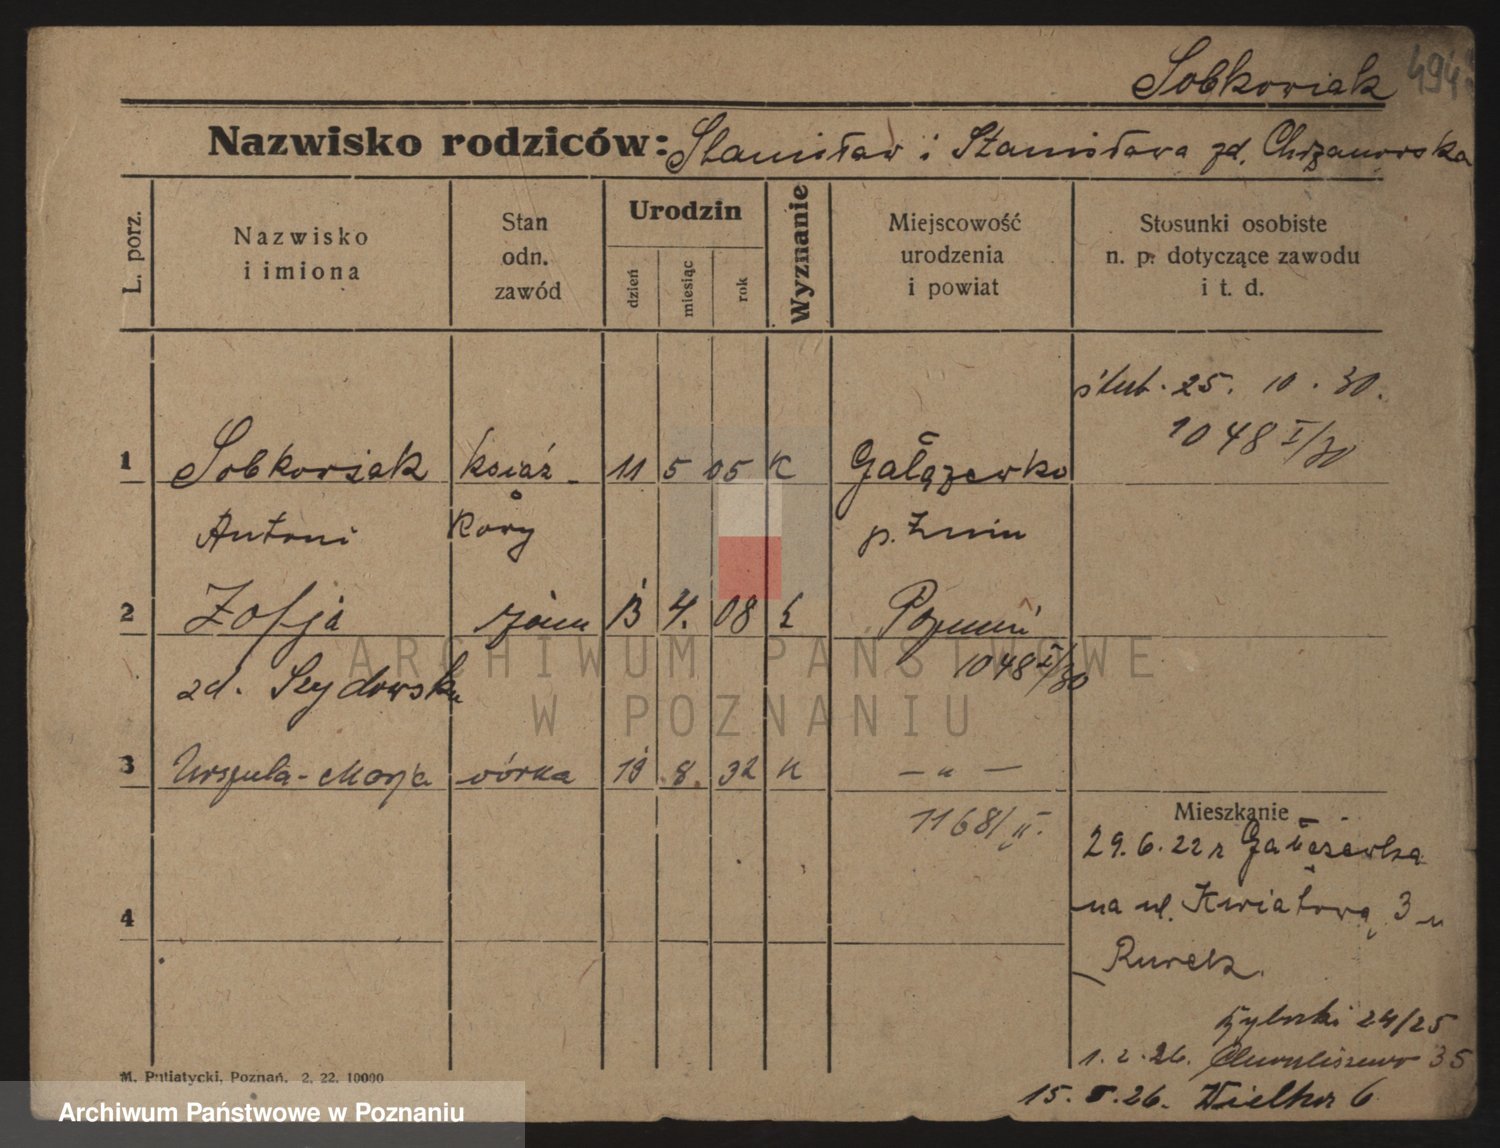 Sobkowiak 494
Nazwisko rodziców: Stanisław i Stanisława zd. Chrzanowska
L. porz.
Nazwisko
i imiona
Stan
odn.
zawód
Urodzin
dzień
miesiąc
rok
Wyznanie
Miejscowość
urodzenia
i powiat
Stosunki osobiste
n. p. dotyczące zawodu
i t. d.
ślub. 25. 10. 30.
1048 I/30
1 Sobkowiak książ- 11 5 05 K Gałązewko
Antoni kowy p. Żnin
2 Zofja żona 13 4. 08 k Poznań
zd. Szydowska 1048 I/30
3 Urszula-Marja córka 19 8. 32 k — " —
1168/II.
4
Mieszkanie
29.6.22 r
na ul. Kwiatową 3 u
24/25
1. 2. 26. Chwaliszewo 35
15. 5. 26. Wielka 6
M. Putiatycki, Poznań. 2. 22. 10000
ARCHIWUM PAŃSTWOWE
W POZNANIU
Archiwum Państwowe w Poznaniu